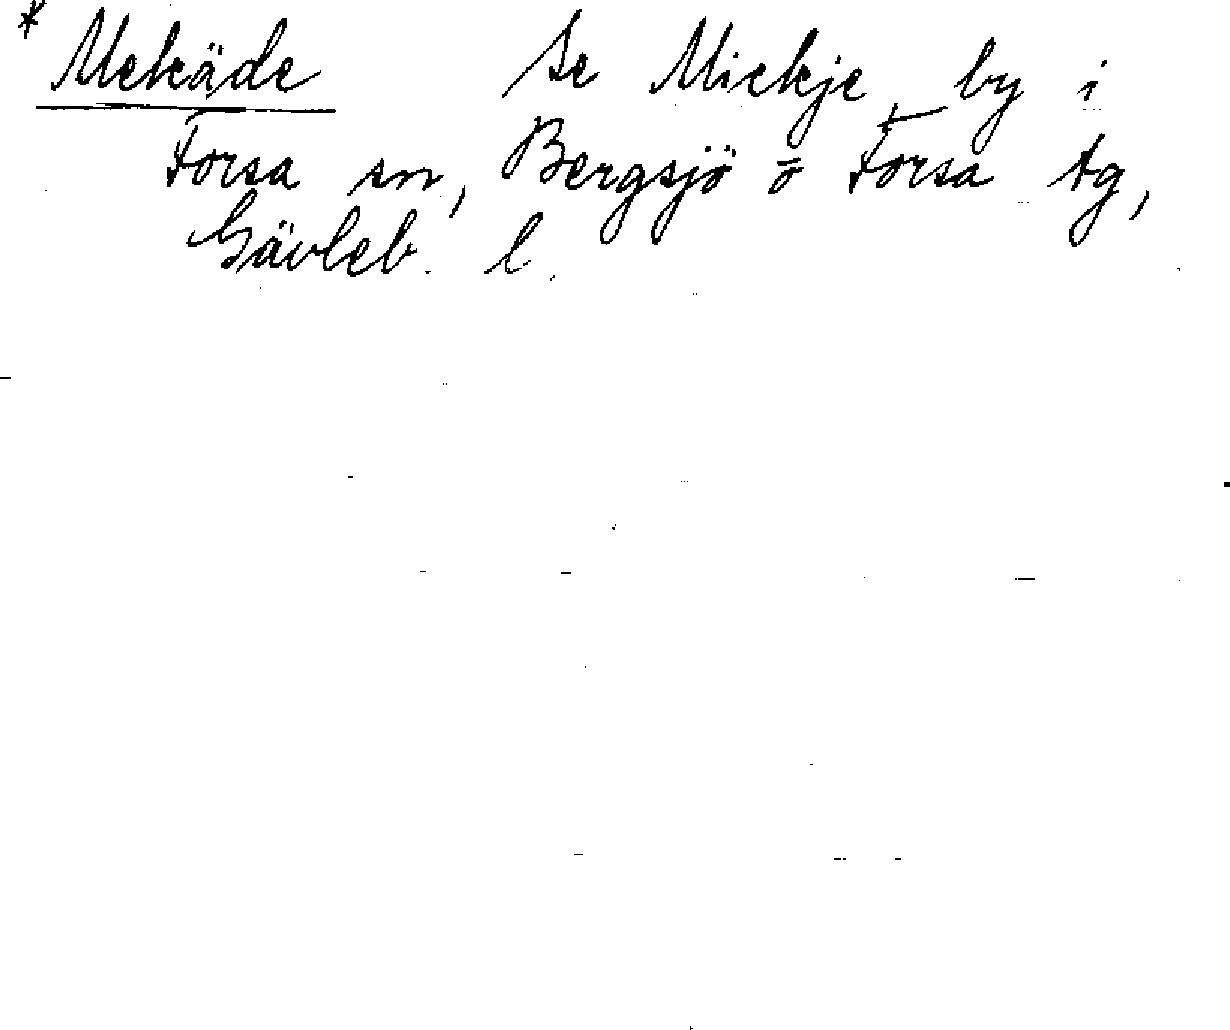 * Mekäde Se Mickje, by i
Forsa sn, Bergsjö o Forsa tg,
Gävleb. l.